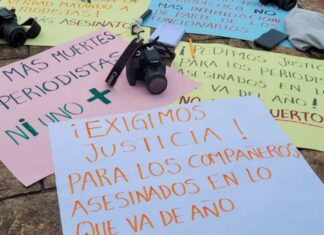 VERDAD MATANDO A
PERIODISTAS!
NO MÁS ASESINATOS
NO MÁS INTIMIDACIÓN
DE PARTE DE
FUNCIONARIOS
MÁS MUERTES
PERIODISTAS
NI UNO +
¡PEDIMOS JUSTICIA
PARA LOS PERIODIS
ASESINADOS EN
VA DE AÑO!
¡EXIGIMOS
JUSTICIA!
PARA LOS COMPAÑEROS
ASESINADOS EN LO
QUE VA DE AÑO.